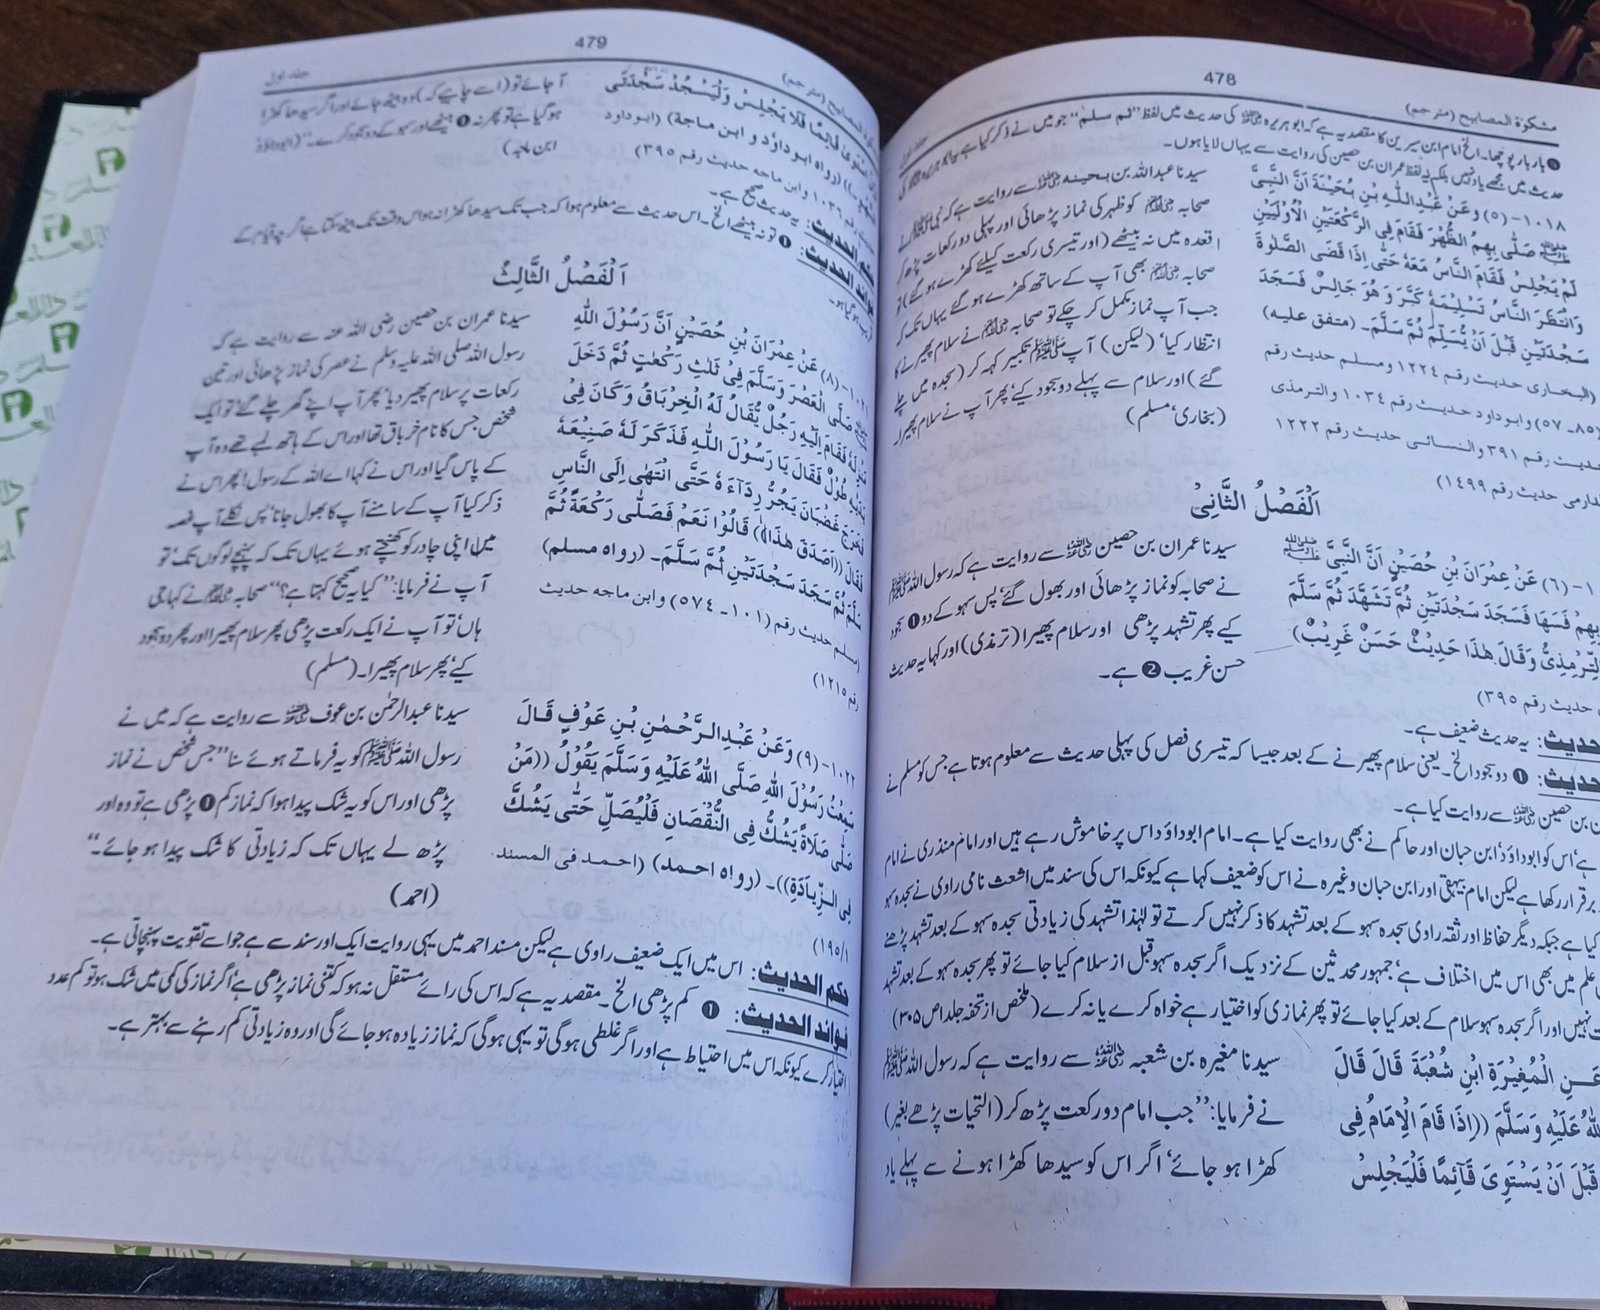 478
مشكوة المصابيح (مترجم)
جلد اول
بار بار پوچھا۔ الخ امام ابن سیرین کا مقصد یہ ہے کہ ابو ہریرہ ﷜ کی حدیث میں لفظ "ثم سلم" جو میں نے ذکر کیا ہے
حدیث میں مجھے یاد نہیں بلکہ یہ لفظ عمران بن حصین کی روایت سے یہاں لایا ہوں۔
١٠١٨-(٥) وَعَنْ عَبْدِاللّٰهِ بْنِ بُحَيْنَةَ اَنَّ النَّبِيَّ
ﷺ صَلّٰى بِهِمُ الظُّهْرَ فَقَامَ فِى الرَّكْعَتَيْنِ الْاُوْلَيَيْنِ
لَمْ يَجْلِسْ فَقَامَ النَّاسُ مَعَهٗ حَتّٰى اِذَا قَضَى الصَّلٰوةَ
وَانْتَظَرَ النَّاسُ تَسْلِيْمَهٗ كَبَّرَ وَهُوَ جَالِسٌ فَسَجَدَ
سَجْدَتَيْنِ قَبْلَ اَنْ يُّسَلِّمَ ثُمَّ سَلَّمَ۔ (متفق عليه)
(البخارى حديث رقم ١٢٢٤ ومسلم حديث رقم
(٨٥۔٥٧) وابوداود حديث رقم ١٠٣٤ والترمذى
حديث رقم ٣٩١ والنسائى حديث رقم ١٢٢٢
دارمى حديث رقم ١٤٩٩)
سیدنا عبداللہ بن بحینہ ﷜ سے روایت ہے کہ نبی ﷺ نے
صحابہ ﷢ کو ظہر کی نماز پڑھائی اور پہلی دو رکعات پڑھ کر
قعدہ میں نہ بیٹھے (اور تیسری رکعت کیلئے کھڑے ہو گئے) تو
صحابہ ﷢ بھی آپ کے ساتھ کھڑے ہو گئے یہاں تک کہ
جب آپ نماز مکمل کر چکے تو صحابہ ﷢ نے سلام پھیرنے کا
انتظار کیا' (لیکن) آپ ﷺ تکبیر کہہ کر (سجدہ میں چلے
گئے) اور سلام سے پہلے دو سجود کیے' پھر آپ نے سلام پھیرا۔
(بخاری' مسلم)
اَلْفَصْلُ الثَّانِیْ
(٦) عَنْ عِمْرَانَ بْنِ حُصَيْنٍ اَنَّ النَّبِيَّ ﷺ
بِهِمْ فَسَهَا فَسَجَدَ سَجْدَتَيْنِ ثُمَّ تَشَهَّدَ ثُمَّ سَلَّمَ
التِّرْمِذِىُّ وَقَالَ هٰذَا حَدِيْثٌ حَسَنٌ غَرِيْبٌ)
حديث رقم ٣٩٥)
سیدنا عمران بن حصین ﷜ سے روایت ہے کہ رسول اللہ ﷺ
نے صحابہ کو نماز پڑھائی اور بھول گئے' پس سہو کے دو ❶ سجود
کیے پھر تشہد پڑھی اور سلام پھیرا (ترمذی) اور کہا یہ حدیث
حسن غریب ❷ ہے۔
حدیث: یہ حدیث ضعیف ہے۔
حدیث: ❶ دو سجود الخ۔ یعنی سلام پھیرنے کے بعد جیسا کہ تیسری فصل کی پہلی حدیث سے معلوم ہوتا ہے جس کو مسلم نے
بن حصین ﷜ سے روایت کیا ہے۔
ہے' اس کو ابوداؤد' ابن حبان اور حاکم نے بھی روایت کیا ہے۔ امام ابوداؤد اس پر خاموش رہے ہیں اور امام منذری نے امام
برقرار رکھا ہے لیکن امام بیہقی اور ابن حبان وغیرہ نے اس کو ضعیف کہا ہے کیونکہ اس کی سند میں اشعث نامی راوی نے سجدہ سہو
کیا ہے جبکہ دیگر حفاظ اور ثقہ راوی سجدہ سہو کے بعد تشہد کا ذکر نہیں کرتے تو لہٰذا تشہد کی زیادتی سجدہ سہو کے بعد تشہد پڑھنے
علم میں بھی اس میں اختلاف ہے' جمہور محدثین کے نزدیک اگر سجدہ سہو قبل از سلام کیا جائے تو پھر سجدہ سہو کے بعد تشہد
نہیں اور اگر سجدہ سہو سلام کے بعد کیا جائے تو پھر نمازی کو اختیار ہے خواہ کرے یا نہ کرے (ملخص از تحفہ جلد ا ص ۳۰۵)
عَنِ الْمُغِيْرَةِ ابْنِ شُعْبَةَ قَالَ قَالَ
اللّٰهُ عَلَيْهِ وَسَلَّمَ ((اِذَا قَامَ الْاِمَامُ فِى
قَبْلَ اَنْ يَسْتَوِىَ قَآئِمًا فَلْيَجْلِسْ
سیدنا مغیرہ بن شعبہ ﷜ سے روایت ہے کہ رسول اللہ ﷺ
نے فرمایا: "جب امام دو رکعت پڑھ کر (التحیات پڑھے بغیر)
کھڑا ہو جائے' اگر اس کو سیدھا کھڑا ہونے سے پہلے یاد
479
(مترجم)
جلد اول
قَآئِمًا فَلَا يَجْلِسْ وَلْيَسْجُدْ سَجْدَتَىِ
(رواه ابوداؤد و ابن ماجة) (ابوداود
رقم ١٠٣٦ وابن ماجه حديث رقم ٣٩٥)
آ جائے تو (اسے چاہیے کہ) وہ بیٹھ جائے اور اگر سیدھا کھڑا
ہو گیا ہے تو پھر نہ ❶ بیٹھے اور سہو کے دو سجود کرے۔" (ابوداؤد
ابن ماجہ)
حکم الحدیث: یہ حدیث صحیح ہے۔
فوائد الحدیث: ❶ تو نہ بیٹھے الخ۔ اس حدیث سے معلوم ہوا کہ جب تک سیدھا کھڑا نہ ہو اس وقت تک بیٹھ سکتا ہے اگرچہ قیام کے
قریب ہو گیا ہو۔
اَلْفَصْلُ الثَّالِثُ
١٠٢١-(٨) عَنْ عِمْرَانَ بْنِ حُصَيْنٍ اَنَّ رَسُوْلَ اللّٰهِ
ﷺ صَلَّى الْعَصْرَ وَسَلَّمَ فِىْ ثَلٰثِ رَكْعٰتٍ ثُمَّ دَخَلَ
مَنْزِلَهٗ فَقَامَ اِلَيْهِ رَجُلٌ يُّقَالُ لَهُ الْخِرْبَاقُ وَكَانَ فِىْ
يَدَيْهِ طُوْلٌ فَقَالَ يَا رَسُوْلَ اللّٰهِ فَذَكَرَ لَهٗ صَنِيْعَهٗ
فَخَرَجَ غَضْبَانَ يَجُرُّ رِدَآءَهٗ حَتّٰى انْتَهٰى اِلَى النَّاسِ
فَقَالَ ((اَصَدَقَ هٰذَا)) قَالُوْا نَعَمْ فَصَلّٰى رَكْعَةً ثُمَّ
سَلَّمَ ثُمَّ سَجَدَ سَجْدَتَيْنِ ثُمَّ سَلَّمَ۔ (رواه مسلم)
(مسلم حديث رقم (١٠١۔٥٧٤) وابن ماجه حديث
رقم ١٢١٥)
سیدنا عمران بن حصین رضی اللہ عنہ سے روایت ہے کہ
رسول اللہ صلی اللہ علیہ وسلم نے عصر کی نماز پڑھائی اور تین
رکعات پر سلام پھیر دیا' پھر آپ اپنے گھر چلے گئے' تو ایک
شخص جس کا نام خرباق تھا اور اس کے ہاتھ لمبے تھے وہ آپ
کے پاس گیا اور اس نے کہا اے اللہ کے رسول! پھر اس نے
ذکر کیا آپ کے سامنے آپ کا بھول جانا' پس نکلے آپ غصہ
میں اپنی چادر کو کھینچتے ہوئے یہاں تک کہ پہنچے لوگوں تک' تو
آپ نے فرمایا: "کیا یہ صحیح کہتا ہے؟" صحابہ ﷢ نے کہا جی
ہاں' تو آپ نے ایک رکعت پڑھی پھر سلام پھیرا اور پھر دو سجود
کیے' پھر سلام پھیرا۔ (مسلم)
١٠٢٢-(٩) وَعَنْ عَبْدِالرَّحْمٰنِ بْنِ عَوْفٍ قَالَ
سَمِعْتُ رَسُوْلَ اللّٰهِ صَلَّى اللّٰهُ عَلَيْهِ وَسَلَّمَ يَقُوْلُ ((مَنْ
صَلّٰى صَلَاةً يَشُكُّ فِى النُّقْصَانِ فَلْيُصَلِّ حَتّٰى يَشُكَّ
فِى الزِّيَادَةِ))۔ (رواه احمد) (احمد فى المسند
١/١٩٥)
سیدنا عبدالرحمٰن بن عوف ﷜ سے روایت ہے کہ میں نے
رسول اللہ ﷺ کو یہ فرماتے ہوئے سنا "جس شخص نے نماز
پڑھی اور اس کو یہ شک پیدا ہوا کہ نماز کم ❶ پڑھی ہے تو وہ اور
پڑھ لے یہاں تک کہ زیادتی کا شک پیدا ہو جائے۔"
(احمد)
حکم الحدیث: اس میں ایک ضعیف راوی ہے لیکن مسند احمد میں یہی روایت ایک اور سند سے ہے جو اسے تقویت پہنچاتی ہے۔
فوائد الحدیث: ❶ کم پڑھی الخ۔ مقصد یہ ہے کہ اس کی رائے مستقل نہ ہو کہ کتنی نماز پڑھی ہے' اگر نماز کی کمی میں شک ہو تو کم عدد
اختیار کرے کیونکہ اس میں احتیاط ہے اور اگر غلطی ہو گی تو یہی ہو گی کہ نماز زیادہ ہو جائے گی اور وہ زیادتی کم رہنے سے بہتر ہے۔